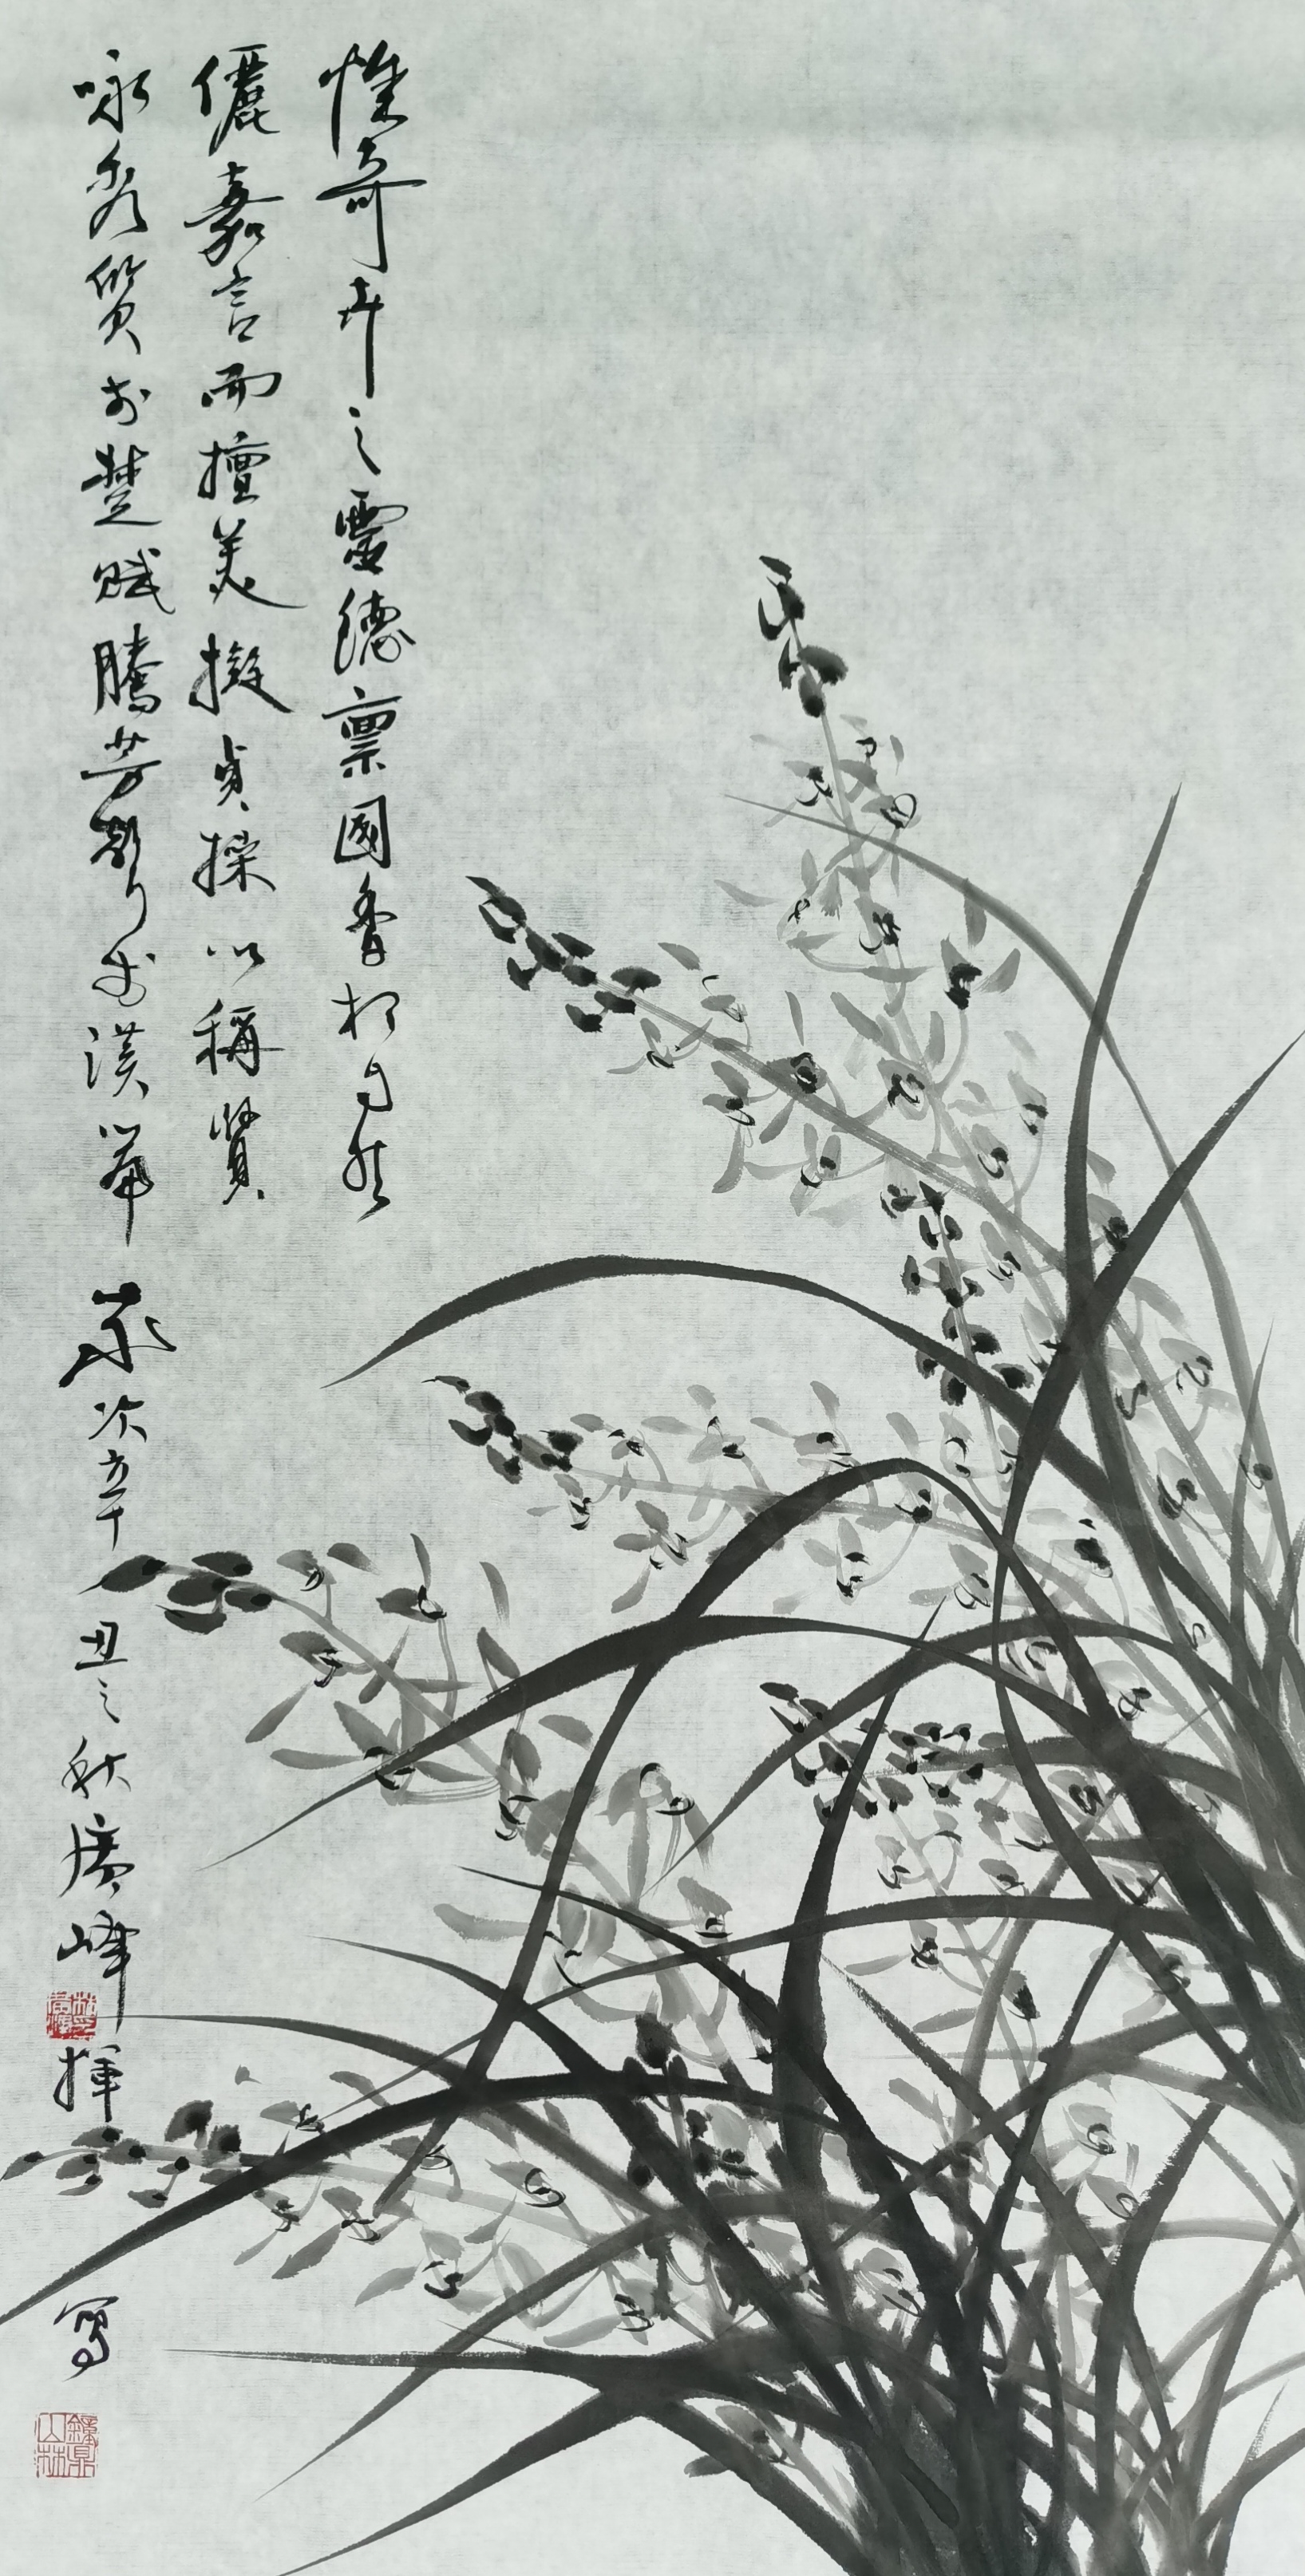 惟奇卉之靈德稟國香於自然
儷嘉言而擅美擬貞操以稱賢
咏秀質於楚賦騰芳聲於漢篇 歲次辛丑之秋廣峰揮寫
鐘鼎山林